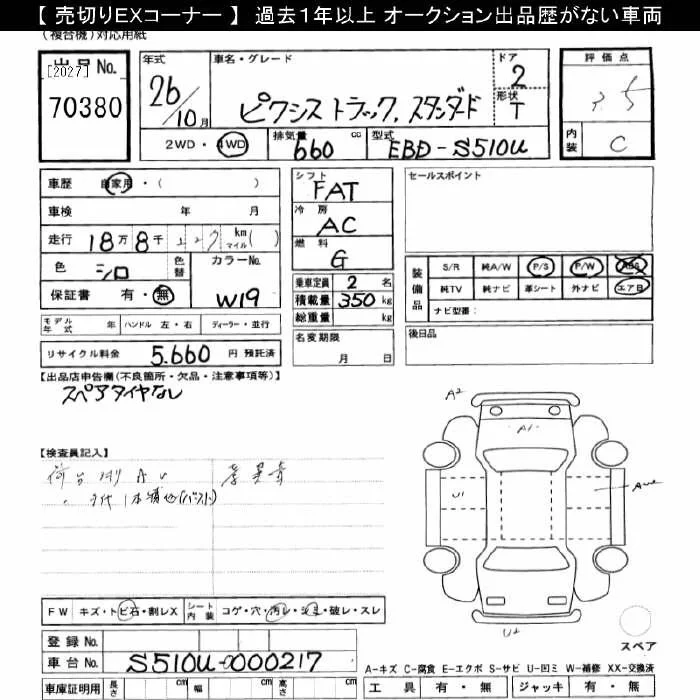 【 売切りEXコーナー 】 過去1年以上 オークション出品歴がない車両
(複合機)対応用紙
出品No.
[2027]
70380
年式
26/10月
車名・グレード
ピクシス トラック. スタンダード
ドア
2
形状
T
2WD・4WD
排気量
660 cc
型式
EBD-S510U
評価点
3.5
内装
C
車歴 自家用・( )
車検 年 月
走行 18万8千 km マイル( )
色 シロ
色替
カラーNo.
W19
保証書 有・無
シフト
FAT
冷房
AC
燃料
G
セールスポイント
乗車定員 2 名
積載量 350 kg
総重量 kg
装備品
S/R 純A/W P/S P/W ABS
純TV 純ナビ 革シート 外ナビ エアB
ナビ型番:
モデル年式 年 ハンドル 左・右 ディーラー・並行
名変期限
月 日
後日品
リサイクル料金 5,660 円 預託済
【出品店申告欄(不良箇所・欠品・注意事項等)】
スペアタイヤなし
【検査員記入】
A2
A1
U1
U2
スペア
FW キズ・トビ石・割レX シート内装 コゲ・穴・汚レ・シミ・破レ・スレ
登録 No.
車台 No. S510U-0000217
車庫証明用 長さ cm 幅 cm 高さ cm
A-キズ C-腐食 E-エクボ S-サビ U-凹ミ W-補修 XX-交換済
工具 有・無 ジャッキ 有・無